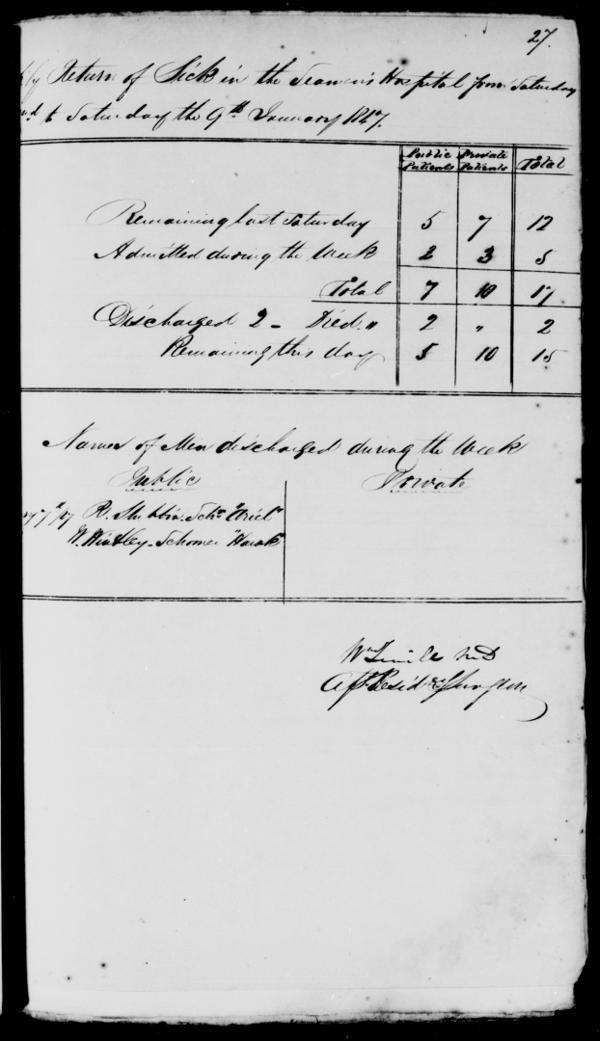 27.
Return of Sick in the Seamen's Hospital from Saturday
to Saturday the 9th January 1847.
Public Patients Private Patients Total
Remaining last Saturday 5 7 12
Admitted during the Week 2 3 5
Total 7 10 17
Discharged 2 - Died " 2 " 2
Remaining this day 5 10 15
Names of Men discharged during the Week
Public Private
7th R. Schr "Ariel"
W. Schooner
Wm MD
Asst Resid Surgeon